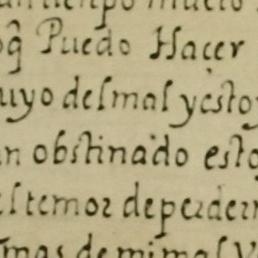 puedo Haçer
uyo del mal y esto
n obstinado esto
el temor de perder
mas de mi mal y